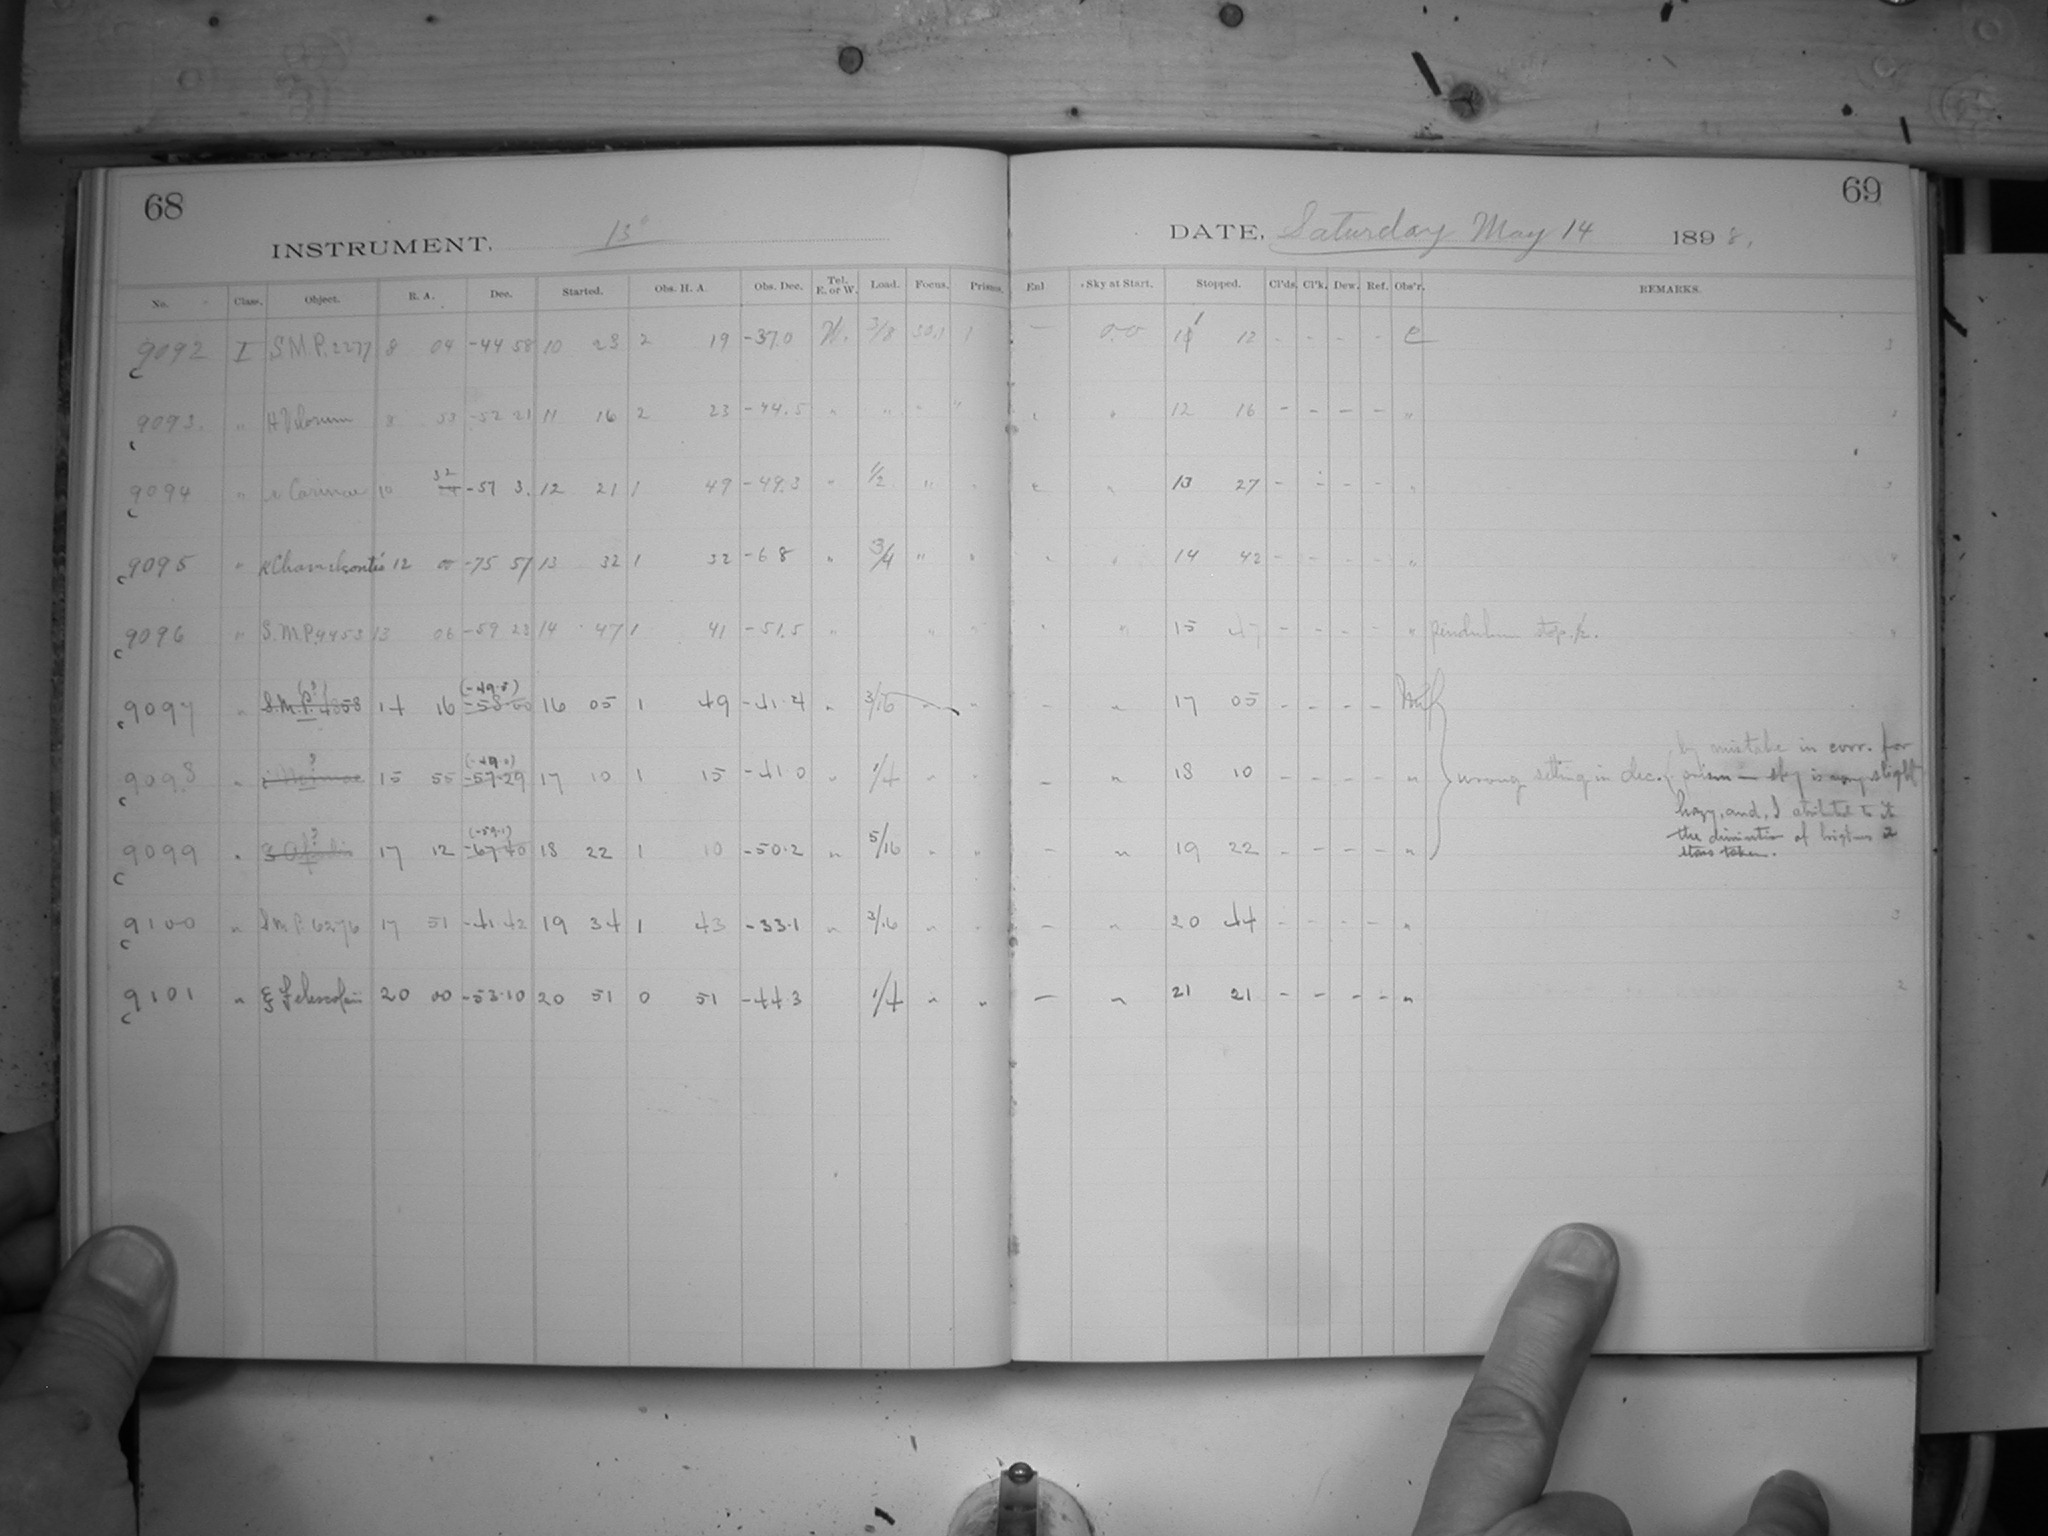 68
69
INSTRUMENT. 13"
DATE, Saturday May 14 1898.
No. Class. Object. R. A. Dec. Started. Obs. H. A. Obs. Dec. Tel. E. or W. Load. Focus. Prisms. Enl Sky at Start. Stopped. Cl'ds. Cl'k. Dew. Ref. Obs'r. REMARKS.
9092 I S.M.P. 2277 8 04 -44 58 10 23 2 19 -37.0 W. 3/8 30.1 1 — 0.0 11 12 - - - - C 3
9093 " H Velorum 8 53 -52 21 11 16 2 23 -44.5 " " " " " 12 16 - - - - "
9094 " Carinae 10 32 -57 3. 12 21 1 49 -49.3 " 1/2 " " " 13 27 - - - - "
9095 " K Chamelontis 12 00 -75 57 13 32 1 32 -68 " 3/4 " " " " 14 42 - - - - "
9096 " S.M.P. 4453 13 06 -59 23 14 47 1 41 -51.5 " " " " " 15 47 - - - - " pendulum stop.
9097 " S.M.P. 4858 (?) 14 16 -58.00 (-49.8) 16 05 1 49 -41.4 " 3/16 " " — " 17 05 - - - -
9098 " ? 15 55 -57.29 (-49.0) 17 10 1 15 -41.0 " 1/4 " " — " 18 10 - - - - " wrong setting in dec. by mistake in corr. for
prism — sky is slight
hazy, and, I atributed to it
the diminution of
stars taken.
9099 " ? 17 12 -67.40 (-59.1) 18 22 1 10 -50.2 " 5/16 " " — " 19 22 - - - - "
9100 " S.M.P. 6276 17 51 -41.42 19 34 1 43 -33.1 " 3/16 " " — " 20 44 - - - - " 3
9101 " ξ Telescopii 20 00 -53.10 20 51 0 51 -44.3 1/4 " " — " 21 21 - - - - " 2